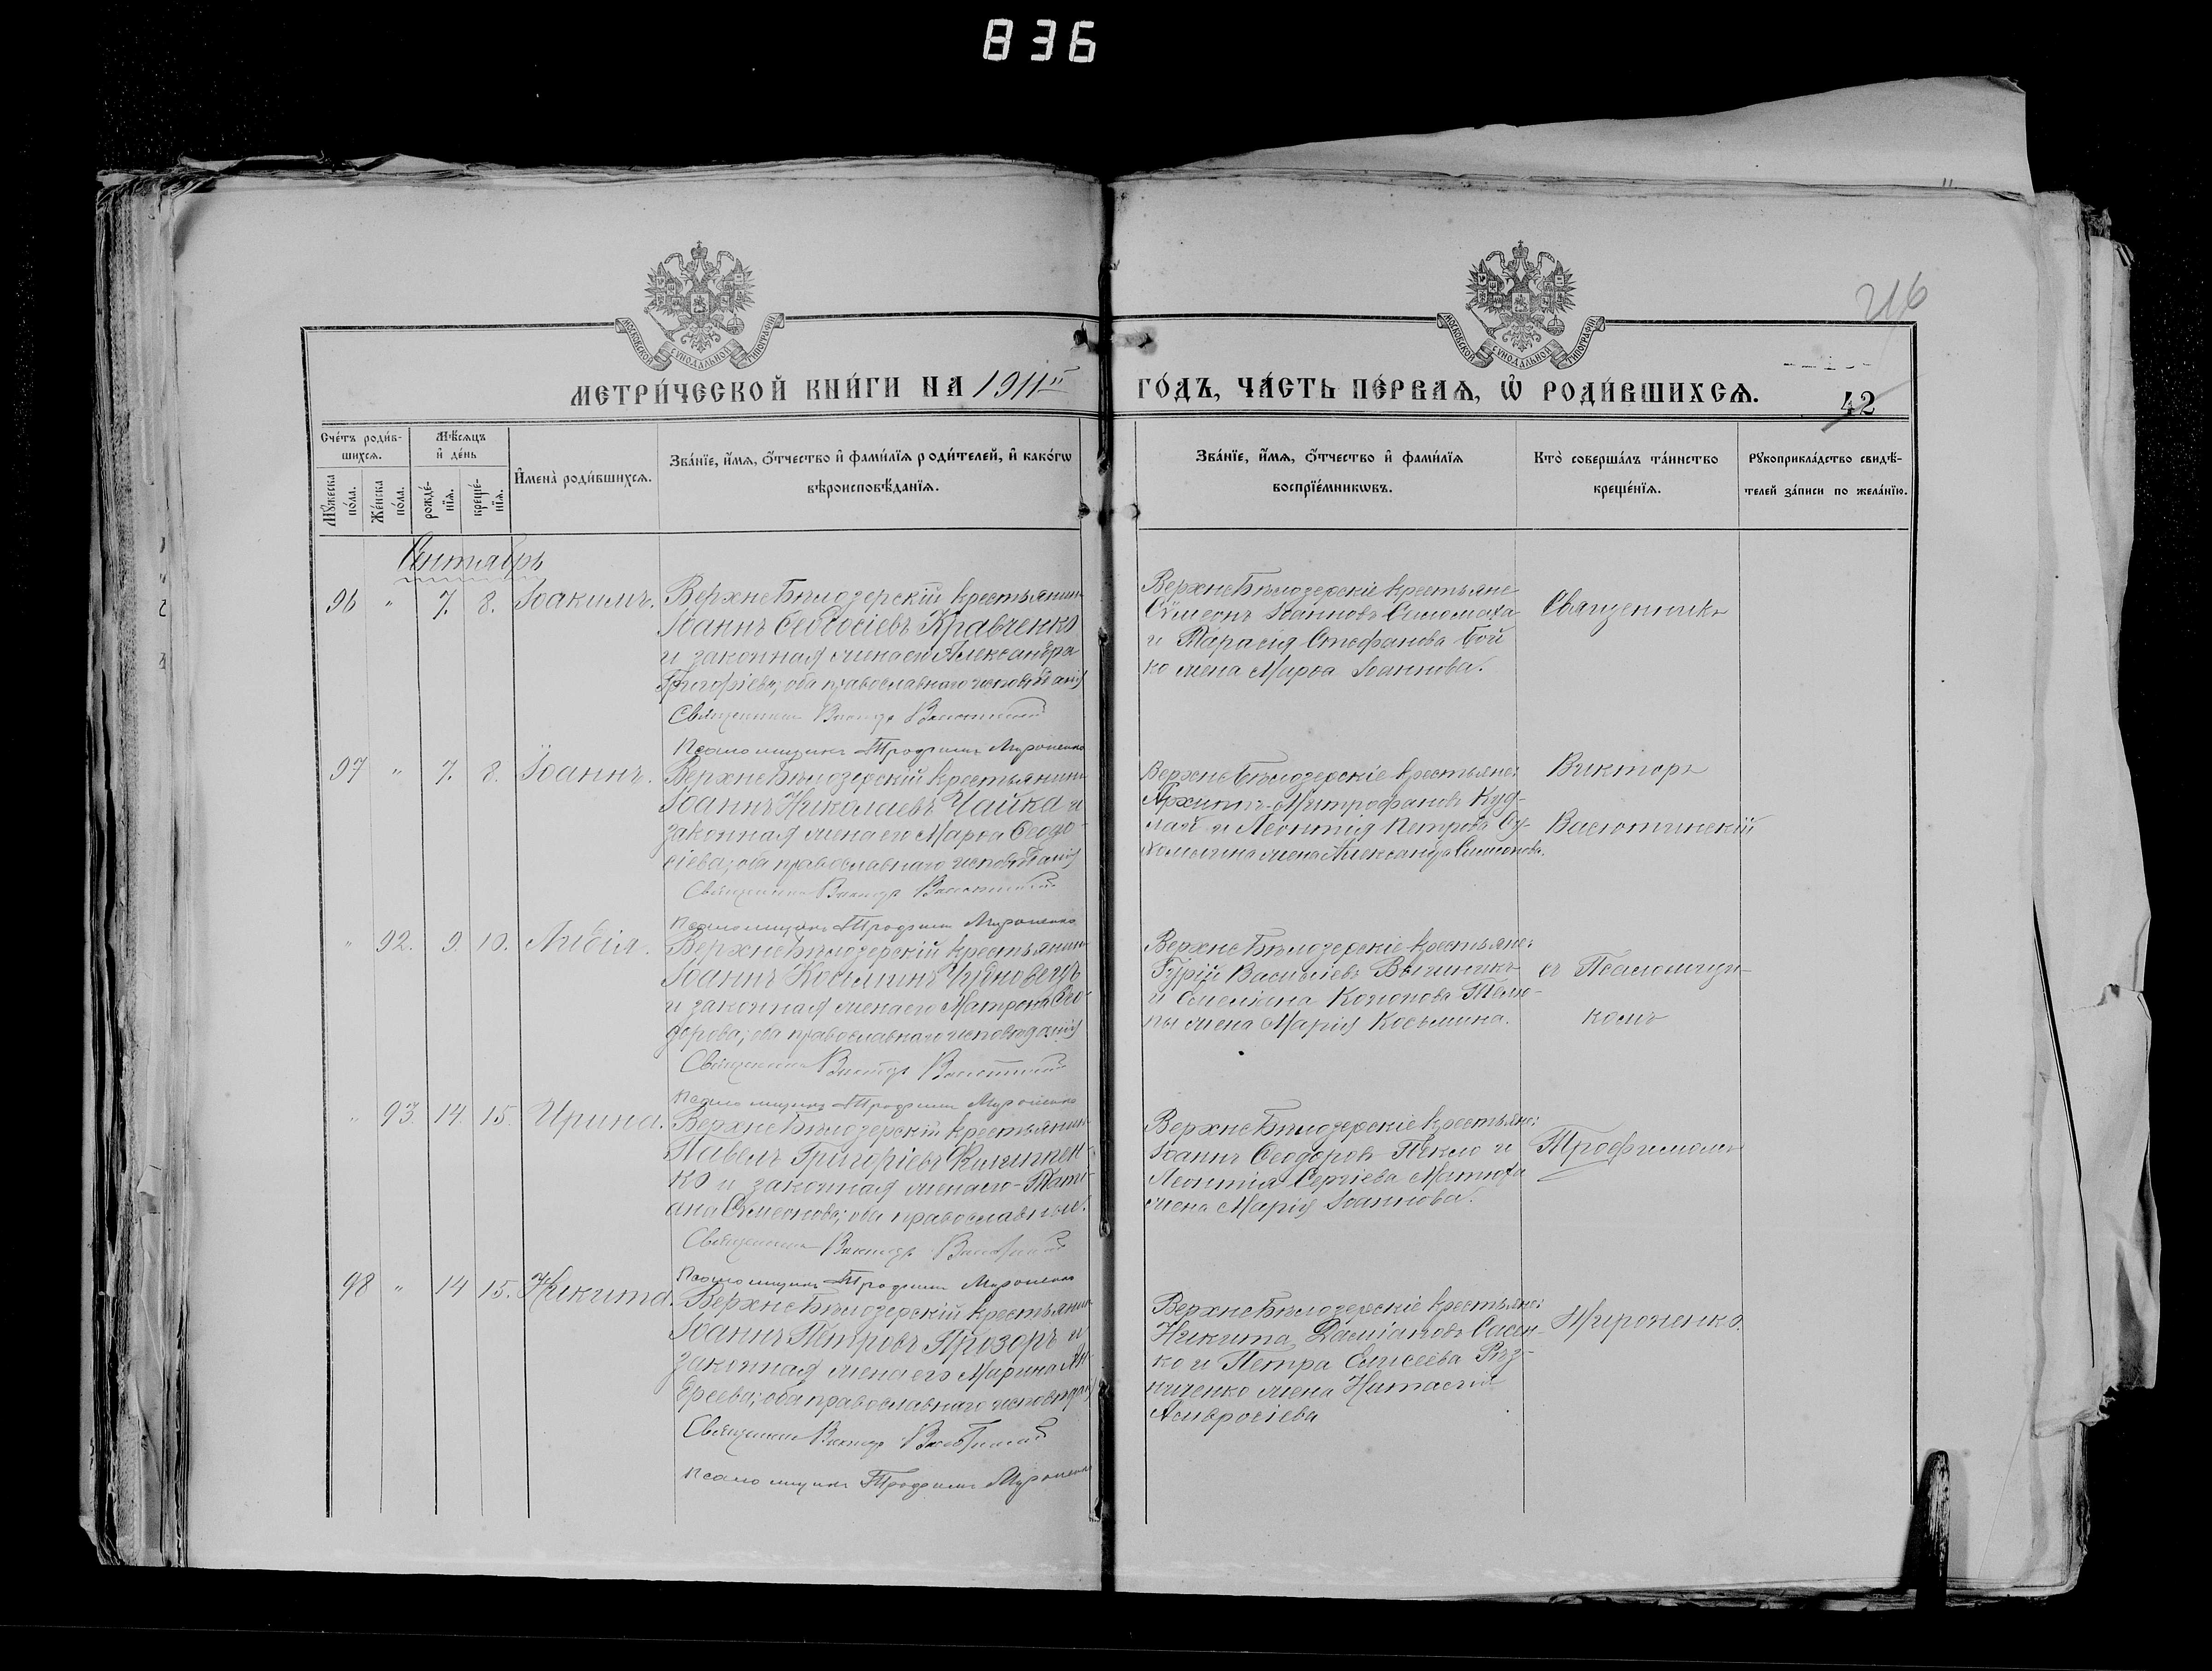 836
216
МОСКОВСКОЙ СУНОДАЛЬНОЙ ТИПОГРАФІИ
МОСКОВСКОЙ СУНОДАЛЬНОЙ ТИПОГРАФІИ
МЕТРИ́ЧЕСКОЙ КНИ́ГИ НА 1911й ГО́ДЪ, ЧА́СТЬ ПЕ́РВАѦ, Ѡ҆ РОДИ́ВШИХСѦ.
42
Сче́тъ роди́в-
шихсѧ.
Мꙋ́жеска по́ла.
Же́нска по́ла.
Мѣ́сѧцъ
и҆ де́нь
рожде́-
нїѧ.
креще́-
нїѧ.
И҆мена̀ роди́вшихсѧ.
Зва́нїе, и҆́мѧ, ѻ҆́тчество и҆ фами́лїѧ роди́телей, и҆ како́гѡ
вѣроисповѣ́данїѧ.
Зва́нїе, и҆́мѧ, ѻ҆́тчество и҆ фами́лїѧ
воспрїе́мникѡвъ.
Кто̀ соверша́лъ та́инство
креще́нїѧ.
Рꙋкоприкла́дство свидѣ́-
телей за́писи по жела́нїю.
Сентябрь
96 " 7. 8. Іоакимъ.
Верхнебѣлозерскій крестьянин
Іоаннъ Ѳеодосіевъ Кравченко
и законная жена его Александра
Григоріева; оба православнаго исповѣданія
Священникъ Викторъ Васютинскій
Псаломщикъ Трофимъ Мироненко
Верхнебѣлозерскіе крестьяне
Сѵмеонъ Іоанновъ
и Тарасія Стефанова Бой
ко жена Марѳа Іоаннова.
Священникъ
97 " 7. 8. Іоаннъ.
Верхнебѣлозерскій крестьянин
Іоаннъ Николаевъ Чайка и
законная жена его Марѳа Ѳеодо-
сіева; оба православнаго исповѣданія
Священникъ Викторъ Васютинскій
Псаломщикъ Трофимъ Мироненко
Верхнебѣлозерскіе крестьяне:
Архиппъ Митрофановъ Куд-
лай и Леонтія Петрова
жена Александра Симеонова.
Викторъ
Васютинскій
" 92. 9. 10. Лидія.
Верхнебѣлозерскій крестьянин
Іоаннъ Косьминъ
и законная жена его Матрона Ѳео-
дорова; оба православнаго исповѣданія
Священникъ Викторъ Васютинскій
Псаломщикъ Трофимъ Мироненко
Верхнебѣлозерскіе крестьяне:
Гурій Васильевъ
и Емеліана Кононова
жена Марія Косьмина.
съ Псаломщи-
комъ
" 93. 14. 15. Ирина.
Верхнебѣлозерскій крестьянин
Павелъ Григоріевъ
ко и законная жена его Тати-
ана Сѵмеонова; оба православные.
Священникъ Викторъ Васютинскій
Псаломщикъ Трофимъ Мироненко
Верхнебѣлозерскіе крестьяне:
Іоаннъ Ѳеодоровъ Пекло и
Леонтія Сергіева Матюха
жена Марія Іоаннова.
Трофимомъ
98 " 14 15. Никита.
Верхнебѣлозерскій крестьянин
Іоаннъ Петровъ Прозоръ и
законная жена его Марина Ан-
дреева; оба православнаго исповѣданія
Священникъ Викторъ Васютинскій
Псаломщикъ Трофимъ Мироненко
Верхнебѣлозерскіе крестьяне:
Никита Даміановъ Сасен-
ко и Петра Елисеева Рѣз-
ниченко жена Наталія
Амвросіева
Мироненко.